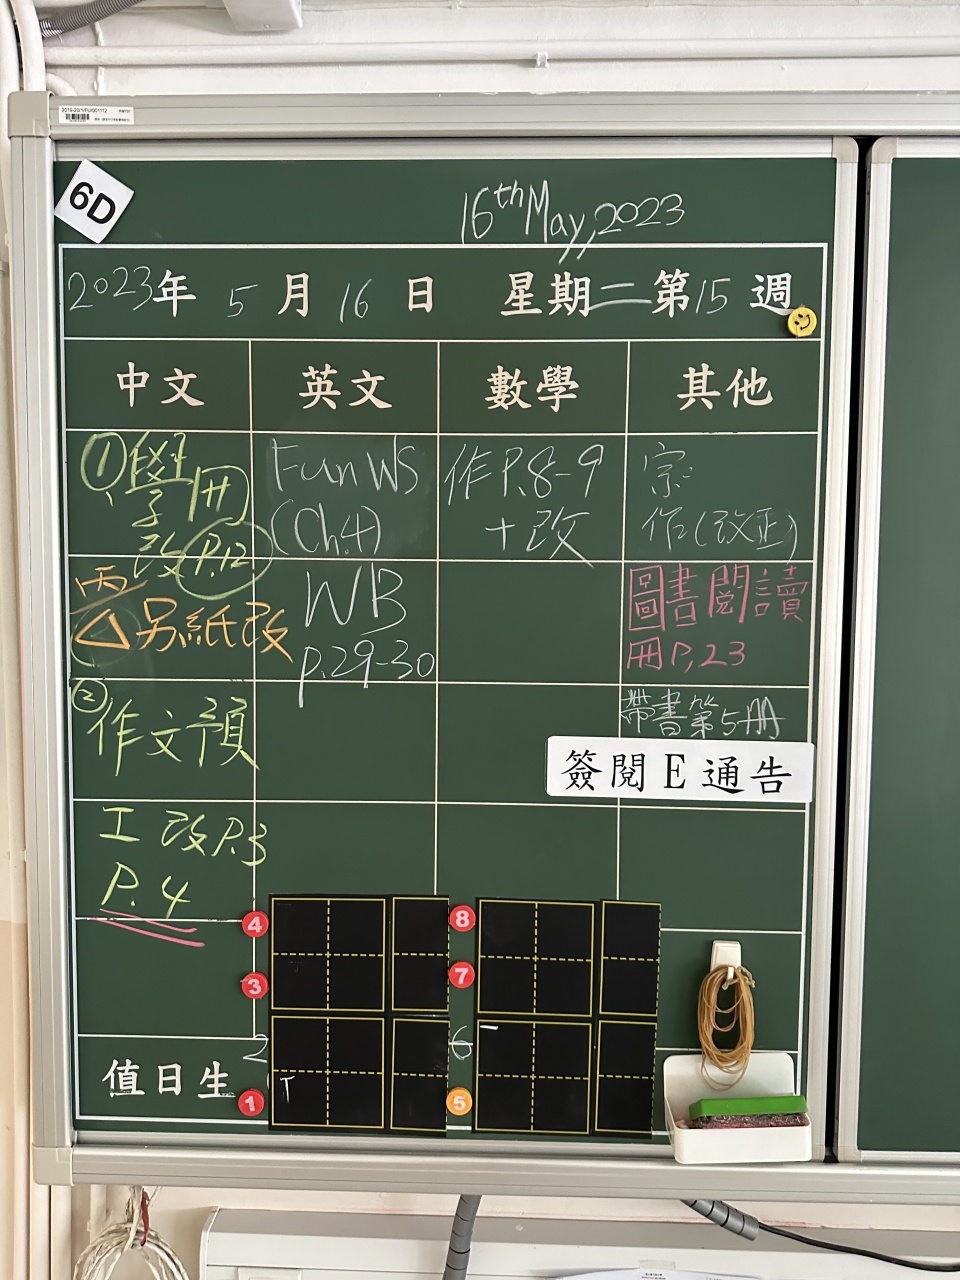 2019-20/1/FU/001112
6D
16th May, 2023
2023年 5 月 16 日 星期二 第15週
中文 英文 數學 其他
①學冊
改P.12
Fun WS
(Ch.4)
作P.8-9
+改
宗
作(改正)
丙
△另紙改
WB
p.29-30
圖書閱讀
冊P.23
②
作文預
帶書第5冊
簽閱E通告
工 改P.3
P.4
4 8
3 7
2 6
值日生
1 5
T